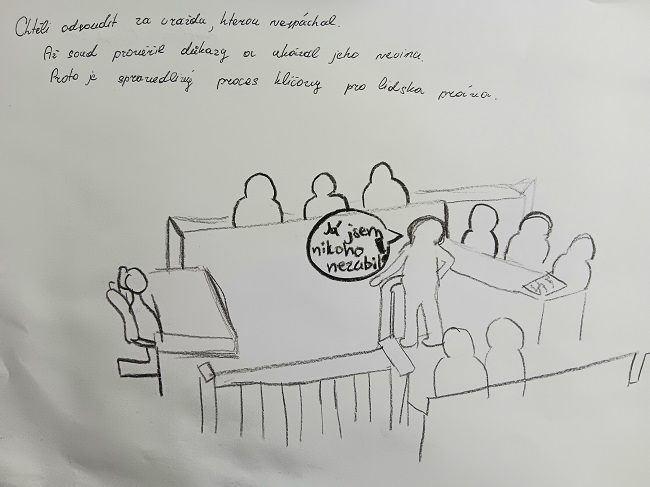 Chtěli odsoudit za vraždu, kterou nespáchal.
Až soud prověřil důkazy a ukázal jeho nevinu.
Proto je spravedlivý proces klíčový pro lidska práva.
Já jsem
nikoho
nezabil